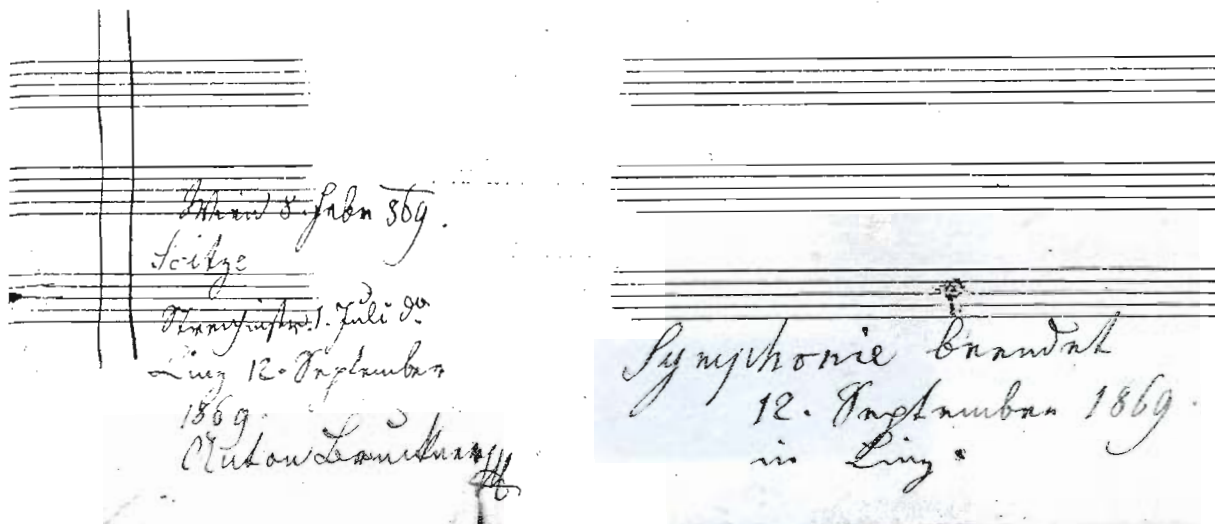 Wien 8. Febr 869.
Scitze
Streichinstr. 1. Juli do
Linz 12. September
1869
Anton Bruckner
Symphonie beendet
12. September 1869.
in Linz.